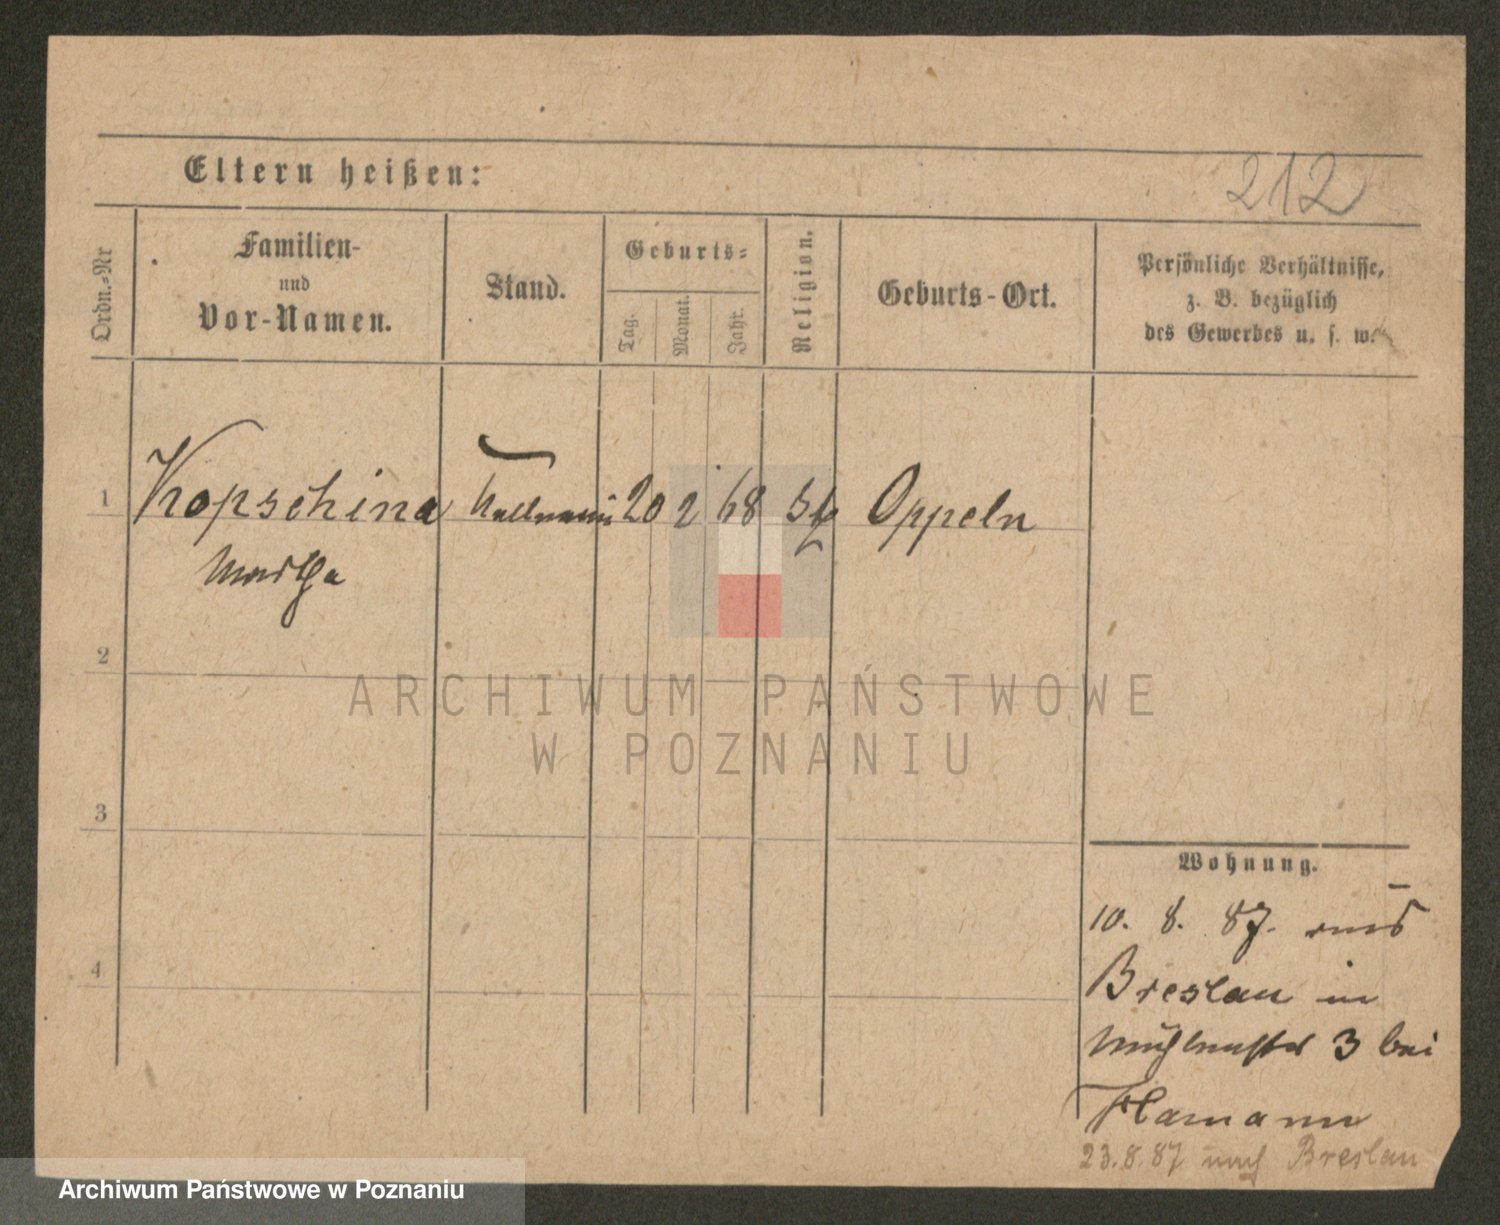 212
Eltern heißen:
Ordn.-Nr
Familien-
und
Vor-Namen.
Stand.
Geburts-
Tag.
Monat.
Jahr.
Religion.
Geburts-Ort.
Persönliche Verhältnisse,
z. B. bezüglich
des Gewerbes u. s. w.
1 Kopschina 20 2 68 Oppeln
Martha
2
3
4
Wohnung.
10. 8. 87. aus
Breslau in
Mühlenstr 3 bei
Hamann
23.8.87 nach Breslau
ARCHIWUM PAŃSTWOWE
W POZNANIU
Archiwum Państwowe w Poznaniu